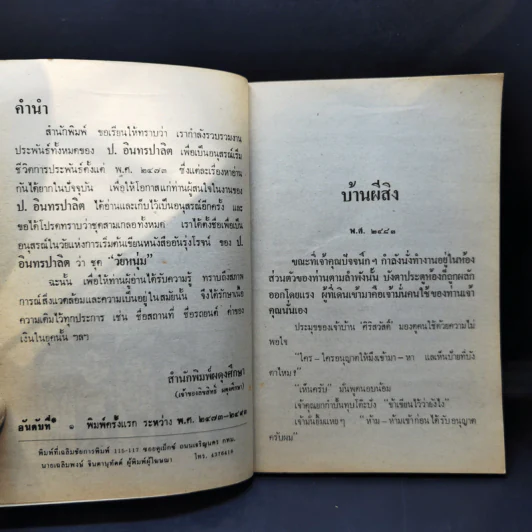 คำนำ
สำนักพิมพ์ ขอเรียนให้ทราบว่า เรากำลังรวบรวมงาน
ประพันธ์ทั้งหมดของ ป. อินทรปาลิต เพื่อเป็นอนุสรณ์เริ่ม
ชีวิตการประพันธ์ตั้งแต่ พ.ศ. ๒๔๗๓ ซึ่งแต่ละเรื่องหาอ่าน
กันได้ยากในปัจจุบัน เพื่อให้โอกาสแก่ท่านผู้สนใจในงานของ
ป. อินทรปาลิต ได้อ่านและเก็บไว้เป็นอนุสรณ์อีกครั้ง และ
ขอได้โปรดทราบว่าชุดสามเกลอทั้งหมด เราได้ตั้งชื่อเพื่อเป็น
อนุสรณ์ในวัยแห่งการเริ่มต้นเขียนหนังสืออันรุ่งโรจน์ ของ ป.
อินทรปาลิต ว่า ชุด "วัยหนุ่ม"
ฉะนั้น เพื่อให้ท่านผู้อ่านได้รับความรู้ ทราบถึงสภาพ
การณ์สิ่งแวดล้อมและความเป็นอยู่ในสมัยนั้น จึงได้รักษาเนื้อ
ความเดิมไว้ทุกประการ เช่น ชื่อสถานที่ ชื่อรถยนต์ ค่าของ
เงินในยุคนั้น ฯลฯ
สำนักพิมพ์ผดุงศึกษา
(เจ้าของลิขสิทธิ์ ผดุงศึกษา)
อันดับที่ ๑ พิมพ์ครั้งแรก ระหว่าง พ.ศ. ๒๔๗๓-๒๔๘๑
พิมพ์ที่เฉลิมชัยการพิมพ์ 115-117 ซอยคูเม็กซ์ ถนนเจริญนคร กทม.
นายเฉลิมพงษ์ จินดานุทัตต์ ผู้พิมพ์ผู้โฆษณา โทร.
บ้านผีสิง
พ.ศ. ๒๔๘๑
ขณะที่เจ้าคุณปัจจนึก ฯ กำลังนั่งทำงานอยู่ในห้อง
ส่วนตัวของท่านตามลำพังนั้น บังตาประตูห้องก็ถูกผลัก
ออกโดยแรง ผู้ที่เดินเข้ามาคือเจ้ามั่นคนใช้ของท่านเจ้า
คุณนั่นเอง
ประมุขของเจ้าบ้าน "ศิริสวัสดิ์" มองดูคนใช้ด้วยความไม่
พอใจ
"ใคร-ใครอนุญาตให้มึงเข้ามา-หา แลเห็นป้ายที่บัง
ตาไหม?"
"เห็นครับ" มั่นพูดนอบน้อม
เจ้าคุณยกกำปั้นทุบโต๊ะปัง "ข้าเขียนไว้ว่ายังไง"
เจ้ามั่นยิ้มแหย ๆ "ห้าม-ห้ามเข้าก่อนได้รับอนุญาต
ครับผม"